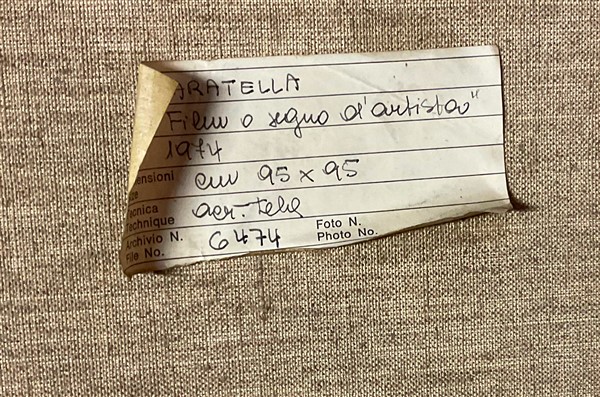 ARATELLA
Film o segno d'artista"
1974
ensioni cm 95 x 95
ze
ecnica acr-tela
Technique
Archivio N. 6474 Foto N.
File No. Photo No.